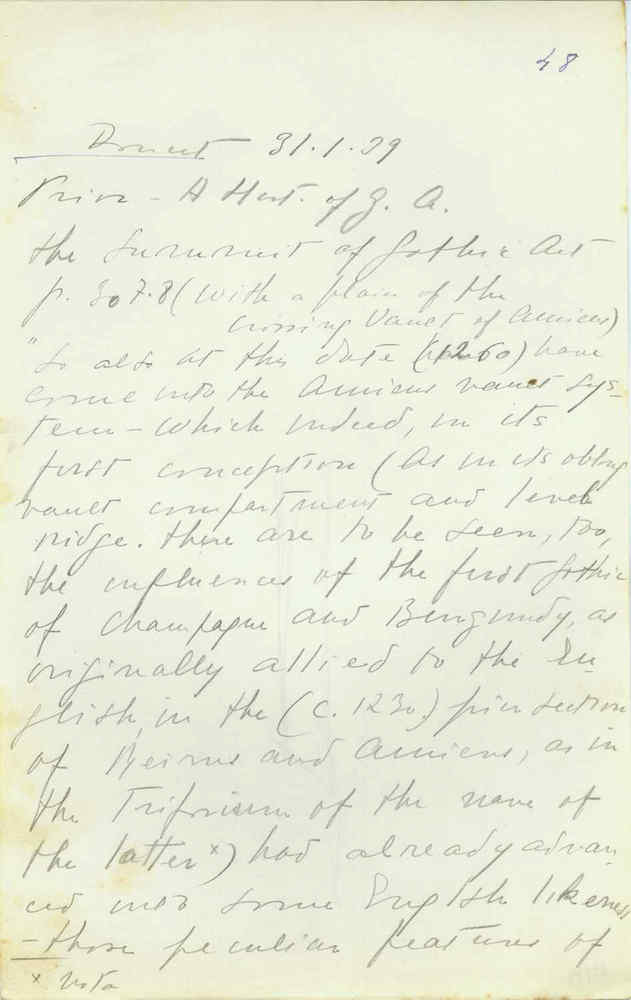 48
31.1.39
Prior - A Hist. of G. A.
the Summit of Gothic Art
p. 307.8 (with a plan of the
crossing Vault of Amiens)
"So also at this date (1260) have
come into the Amiens vault sys-
tem - which indeed, in its
first conception (as in its oblong
vault compartment and level
ridge. there are to be seen, too,
the influences of the first Gothic
of Champagne and Burgundy, as
originally allied to the En-
glish, in the (c. 1230) pier section
of Reims and Amiens, as in
the Triforium of the nave of
the latter x) had already advan-
ced into some English likeness
- those peculiar features of
x nota